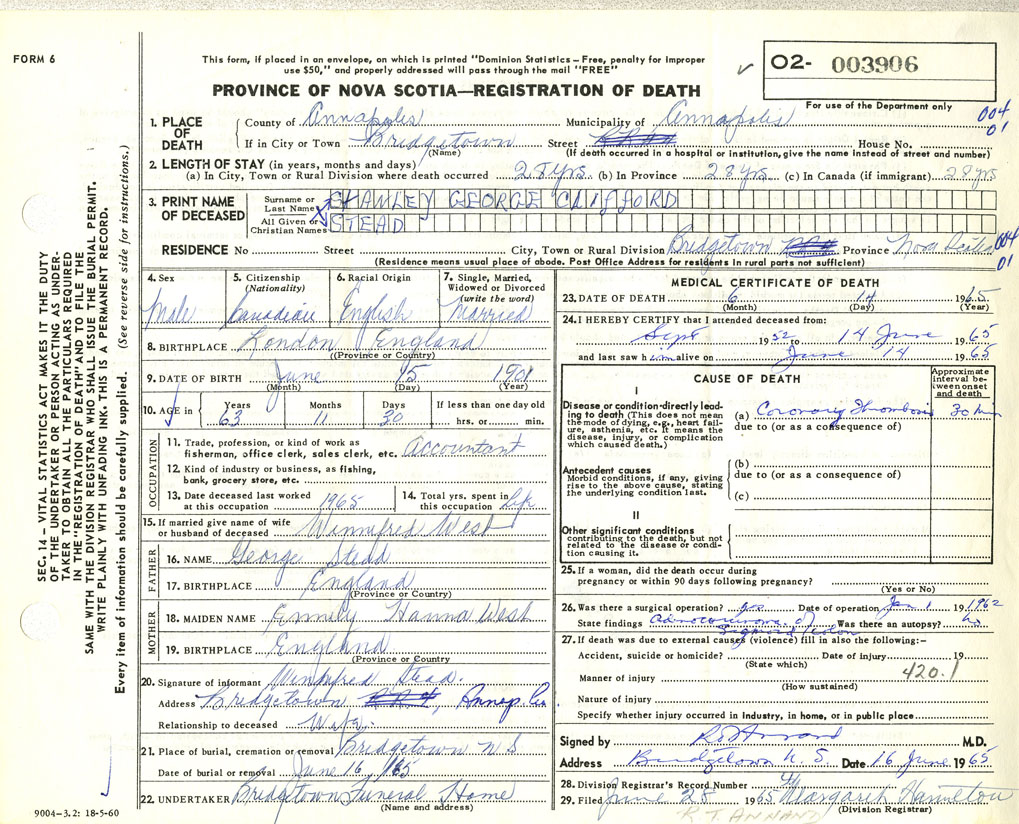 FORM 6
This form, if placed in an envelope, on which is printed "Dominion Statistics – Free, penalty for improper
use $50," and properly addressed will pass through the mail "FREE"
✓ O2- 003906
PROVINCE OF NOVA SCOTIA—REGISTRATION OF DEATH
For use of the Department only
004
01
1. PLACE OF DEATH
County of Annapolis Municipality of Annapolis
If in City or Town Bridgetown Street House No.
(Name) (If death occurred in a hospital or institution, give the name instead of street and number)
2. LENGTH OF STAY (in years, months and days)
(a) In City, Town or Rural Division where death occurred 28 yrs. (b) In Province 28 yrs (c) In Canada (if immigrant) 28 yrs
3. PRINT NAME OF DECEASED
Surname or Last Name STANLEY GEORGE CLIFFORD
All Given or Christian Names STEAD
RESIDENCE No Street City, Town or Rural Division Bridgetown Province Nova Scotia 004
01
(Residence means usual place of abode. Post Office Address for residents in rural parts not sufficient)
4. Sex
Male
5. Citizenship
(Nationality)
Canadian
6. Racial Origin
English
7. Single, Married,
Widowed or Divorced
(write the word)
Married
8. BIRTHPLACE London England
((Province or Country)
9. DATE OF BIRTH June 15 1901
(Month) (Day) (Year)
10. AGE in Years 63 Months 11 Days 30 If less than one day old
hrs. or min.
OCCUPATION
11. Trade, profession, or kind of work as
fisherman, office clerk, sales clerk, etc. Accountant
12. Kind of industry or business, as fishing,
bank, grocery store, etc.
13. Date deceased last worked
at this occupation 1965
14. Total yrs. spent in
this occupation Life
15. If married give name of wife
or husband of deceased Winnifred West
FATHER
16. NAME George Stead
17. BIRTHPLACE England
(Province or Country)
MOTHER
18. MAIDEN NAME Emmily Hanna West
19. BIRTHPLACE England
(Province or Country
20. Signature of informant Winnifred Stead.
Address Bridgetown , Annap. Co
Relationship to deceased Wife.
21. Place of burial, cremation or removal Bridgetown N S
Date of burial or removal June 16, 1965
22. UNDERTAKER Bridgetown Funeral Home
(Name and address)
MEDICAL CERTIFICATE OF DEATH
23. DATE OF DEATH 6 14 1965
(Month) (Day) (Year)
24. I HEREBY CERTIFY that I attended deceased from:
Sept 1952 to 14 June 1965
and last saw him alive on June 14 1965
CAUSE OF DEATH
Approximate
interval be-
tween onset
and death
I
Disease or condition directly lead-
ing to death (This does not mean
the mode of dying, e.g., heart fail-
ure, asthenia, etc. It means the
disease, injury, or complication
which caused death.)
(a) Coronary Thrombosis 30 min
due to (or as a consequence of)
Antecedent causes
Morbid conditions, if any, giving
rise to the above cause, stating
the underlying condition last.
(b)
due to (or as a consequence of)
(c)
II
Other significant conditions
contributing to the death, but not
related to the disease or condi-
tion causing it.
25. If a woman, did the death occur during
pregnancy or within 90 days following pregnancy?
(Yes or No)
26. Was there a surgical operation? yes Date of operation Jan 1 19 1962
State findings Adenocarcinoma of Was there an autopsy? no
Sigmoid Colon
27. If death was due to external causes (violence) fill in also the following:–
Accident, suicide or homicide? Date of injury 19
(State which)
Manner of injury 420.1
(How sustained)
Nature of injury
Specify whether injury occurred in industry, in home, or in public place
Signed by R T Annand M.D.
Address Bridgetown N. S. Date 16 June 1965
28. Division Registrar's Record Number
29. Filed June 28 1965 Margaret Hamilton
(Division Registrar)
R.T. ANNAND
SEC. 14 – VITAL STATISTICS ACT MAKES IT THE DUTY
OF THE UNDERTAKER OR PERSON ACTING AS UNDER-
TAKER TO OBTAIN ALL THE PARTICULARS REQUIRED
IN THE "REGISTRATION OF DEATH" AND TO FILE THE
SAME WITH THE DIVISION REGISTRAR WHO SHALL ISSUE THE BURIAL PERMIT.
WRITE PLAINLY WITH UNFADING INK. THIS IS A PERMANENT RECORD.
Every item of information should be carefully supplied. (See reverse side for instructions.)
9004–3.2: 18-5-60